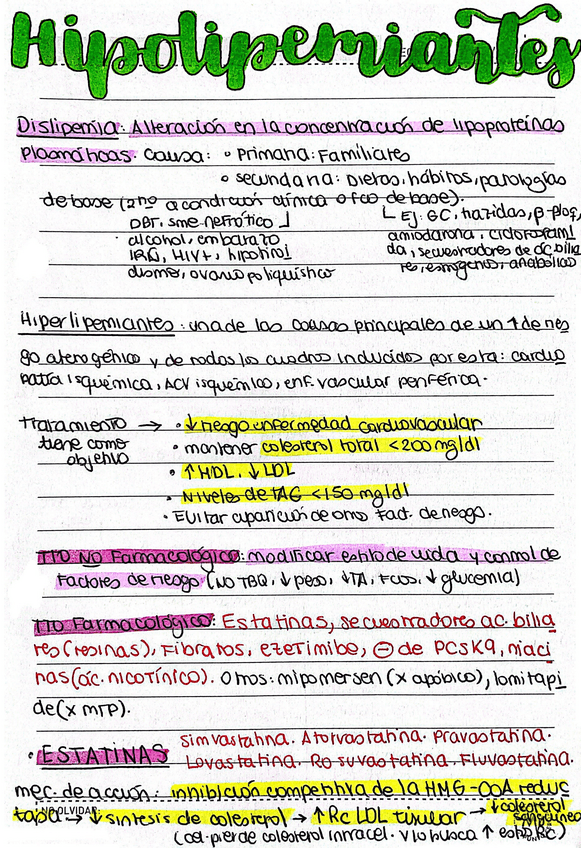 Hipolipemiantes
Dislipemia: Alteración en la concentración de lipoproteínas
plasmáticas. Causa: ° Primaria: Familiares
° secundaria: Dietas, hábitos, patologías
de base (2rio a condición clínica o fco de base).
DBT, sme nefrótico ┘ └ Ej: GC, tiazidas, β-bloq,
alcohol, embarazo amiodarona, ciclofosfami
IRC, HIV+, hipotiroi da, secuestradores de ác. bilia
dismo, ovario poliquístico res, estrógenos, anabólicos
Hiperlipemiantes: una de las causas principales de un ↑ de ries
go aterogénico y de todos los cuadros inducidos por esta: cardio
patía isquémica, ACV isquémico, enf. vascular periférica.
tratamiento → • ↓ riesgo enfermedad cardiovascular
tiene como • mantener colesterol total <200 mg/dl
objetivo • ↑ HDL, ↓ LDL
• Niveles de TAG <150 mg/dl
• Evitar aparición de otros fact. de riesgo.
TTO No Farmacológico: modificar estilo de vida y control de
factores de riesgo (NO TBQ, ↓ peso, ↓TA, FCOS, ↓ glucemia)
TTO Farmacológico: Estatinas, secuestradores ac. bilia
res (resinas), Fibratos, ezetimibe, ⊖ de PCSK9, niaci
nas (ác. nicotínico). Otros: mipomersen (x apóbico), lomitapi
de (x MTP).
• ESTATINAS Simvastatina. Atorvastatina. Pravastatina.
Lovastatina. Rosuvastatina. Fluvastatina.
mec. de acción: inhibición competitiva de la HMG-COA reduc
NO OLVIDAR:
tasa → ↓ síntesis de colesterol → ↑ Rc LDL tisular → ↓ colesterol
sanguíneo
(cel. pierde colesterol intracel. y lo busca ↑ esto Rc)